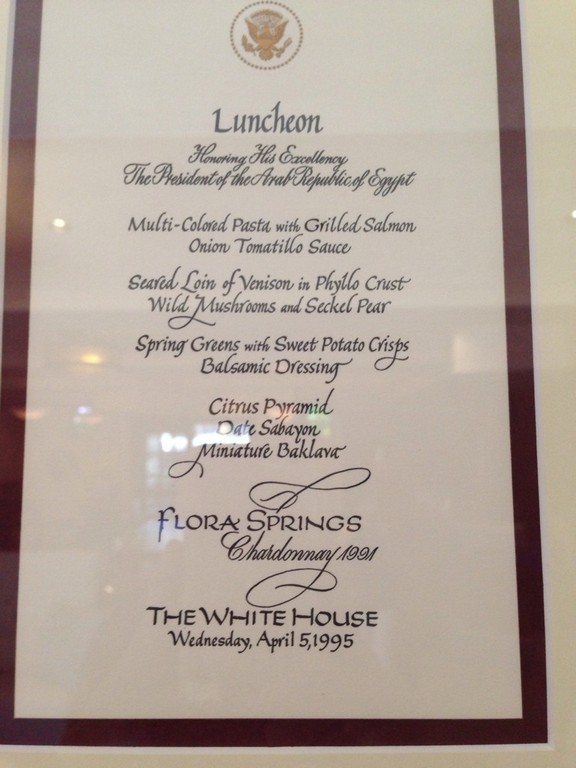 Luncheon
Honoring His Excellency
The President of the Arab Republic of Egypt
Multi-Colored Pasta with Grilled Salmon
Onion Tomatillo Sauce
Seared Loin of Venison in Phyllo Crust
Wild Mushrooms and Seckel Pear
Spring Greens with Sweet Potato Crisps
Balsamic Dressing
Citrus Pyramid
Date Sabayon
Miniature Baklava
FLORA SPRINGS
Chardonnay 1991
THE WHITE HOUSE
Wednesday, April 5, 1995